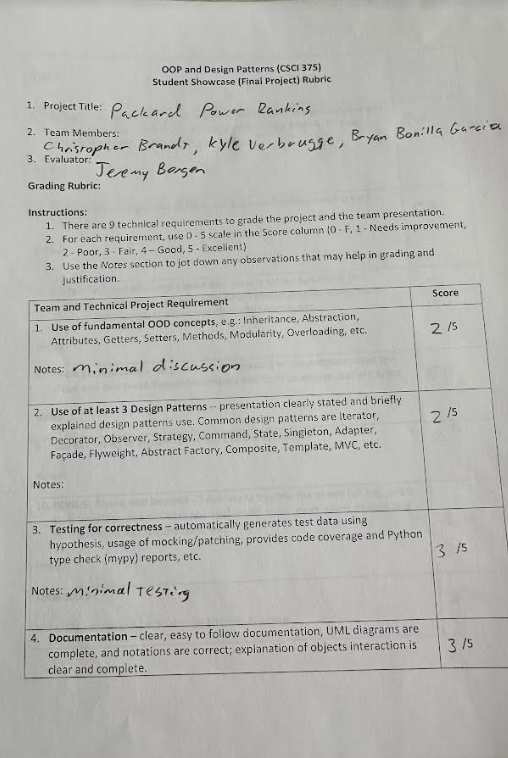 OOP and Design Patterns (CSCI 375)
Student Showcase (Final Project) Rubric
1. Project Title: Packard Power Rankings
2. Team Members:
Chrisropher Brandt, Kyle Verbrugge, Bryan Bonilla Garcia
3. Evaluator: Jeremy Bergen
Grading Rubric:
Instructions:
1. There are 9 technical requirements to grade the project and the team presentation.
2. For each requirement, use 0 - 5 scale in the Score column (0 - F, 1 - Needs improvement,
2 - Poor, 3 - Fair, 4 – Good, 5 - Excellent)
3. Use the Notes section to jot down any observations that may help in grading and
justification.
Team and Technical Project Requirement Score
1. Use of fundamental OOD concepts, e.g.: Inheritance, Abstraction, 2 /5
Attributes, Getters, Setters, Methods, Modularity, Overloading, etc.
Notes: minimal discussion
2. Use of at least 3 Design Patterns – presentation clearly stated and briefly 2 /5
explained design patterns use. Common design patterns are Iterator,
Decorator, Observer, Strategy, Command, State, Singleton, Adapter,
Façade, Flyweight, Abstract Factory, Composite, Template, MVC, etc.
Notes:
3. Testing for correctness – automatically generates test data using
hypothesis, usage of mocking/patching, provides code coverage and Python 3 /5
type check (mypy) reports, etc.
Notes: minimal testing
4. Documentation – clear, easy to follow documentation, UML diagrams are
complete, and notations are correct; explanation of objects interaction is 3 /5
clear and complete.